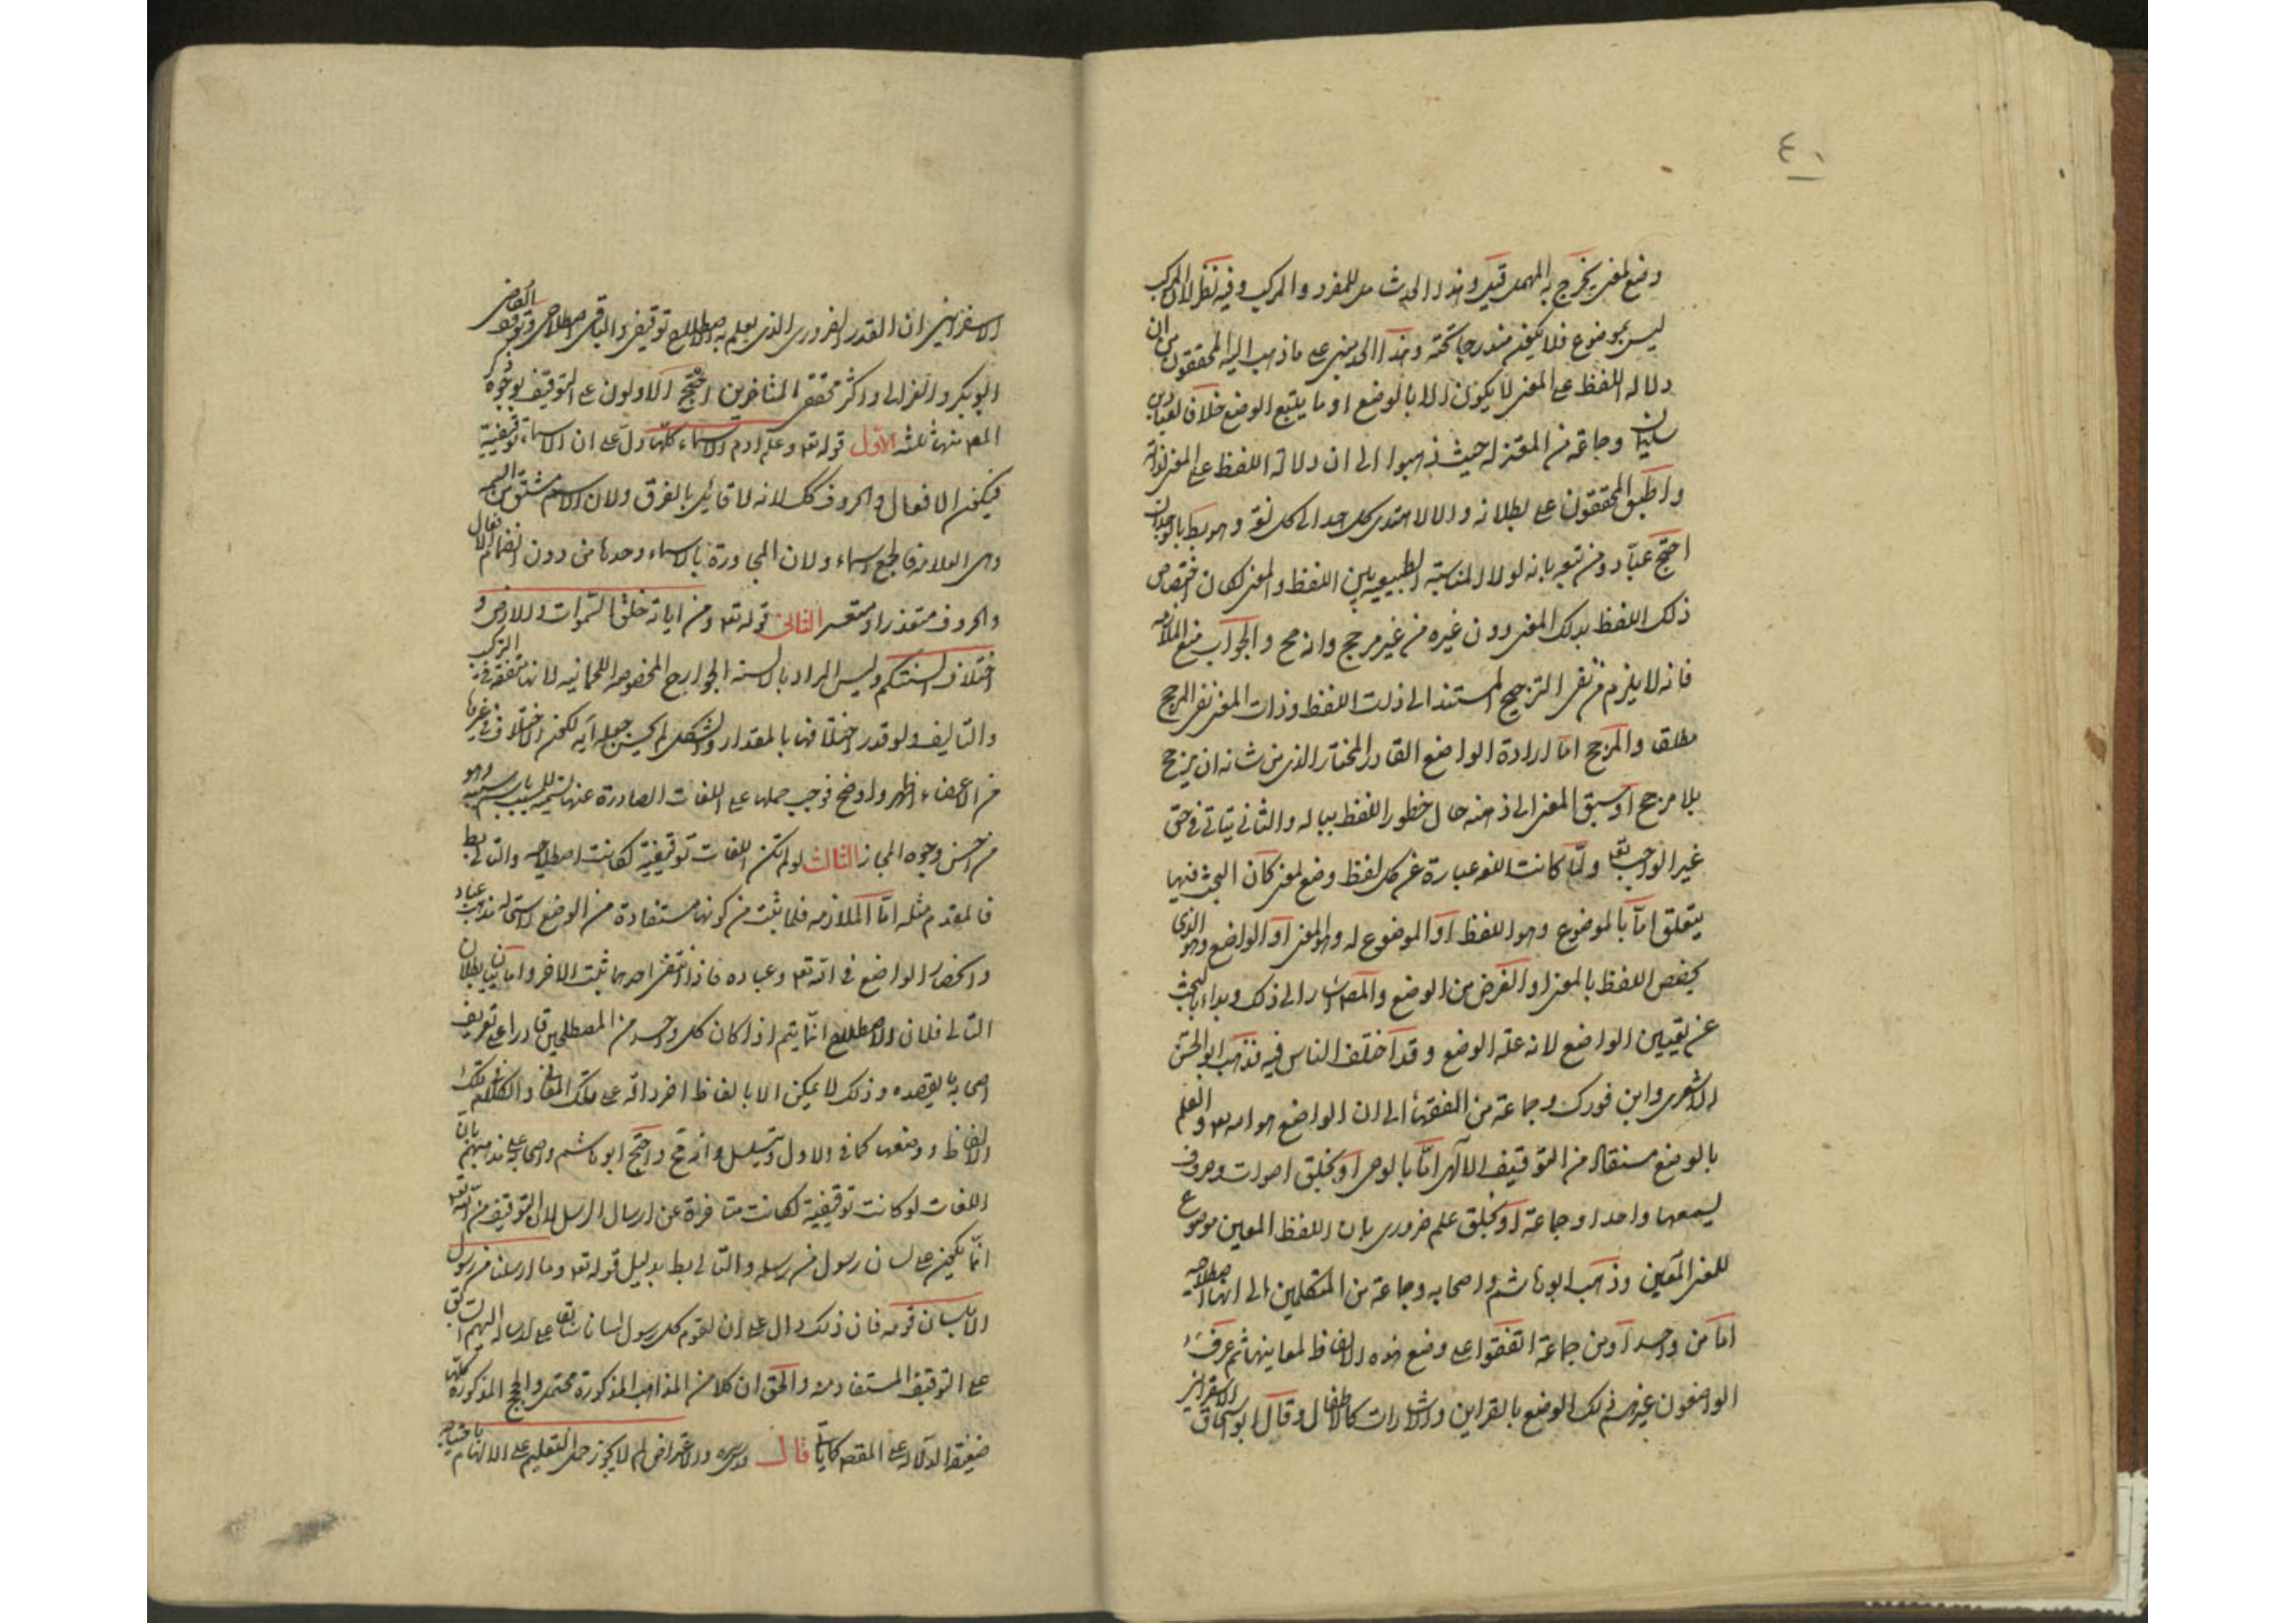 ٤٠
وضع لمعنى يخرج به المهمل قيل وهذا الحد شامل للمفرد والمركب وفيه نظر لان المركب
ليس بموضوع فلا يكون مندرجا تحته وهذا الحد مبنى على ما ذهب اليه المحققون من ان
دلالة اللفظ على المعنى لا يكون الا بالوضع او ما يتبع الوضع خلافا لعباد بن
سليمان وجماعة من المعتزلة حيث ذهبوا الى ان دلالة اللفظ على المعنى لذاته
واطبق المحققون على بطلانه والا لاهتدى كل احد الى كل لغة وهو بط بالوجدان
احتج عباد ومن تبعه بانه لولا المناسبة الطبيعية بين اللفظ والمعنى لكان اختصاص
ذلك اللفظ بذلك المعنى دون غيره من غير مرجح وانه مح والجواب منع الملازمة
فانه لا يلزم من نفى الترجيح المستند الى ذات اللفظ وذات المعنى نفى المرجح
مطلقا والمرجح اما ارادة الواضع القادر المختار الذى من شانه ان يرجح
بلا مرجح او سبق المعنى الى ذهنه حال خطور اللفظ بباله والثانى يتاتى فى حق
غير الواجب تع ولما كانت اللغة عبارة عن كل لفظ وضع لمعنى كان البحث فيها
يتعلق اما بالموضوع وهو اللفظ او الموضوع له وهو المعنى او الواضع وهو الذى
يخصص اللفظ بالمعنى او الغرض من الوضع والمص اشار الى ذلك وبداء بالبحث
عن تعيين الواضع لانه علة الوضع وقد اختلف الناس فيه فذهب ابو الحسن
الاشعرى وابن فورك وجماعة من الفقهاء الى ان الواضع هو الله تع والعلم
بالوضع مستفاد من التوقيف الالهى اما بالوحى او بخلق اصوات وحروف
يسمعها واحدا وجماعة او بخلق علم ضرورى بان اللفظ المعين موضوع
للمعنى المعين وذهب ابو هاشم واصحابه وجماعة من المتكلمين الى انها اصطلاحية
اما من واحد او من جماعة اتفقوا على وضع هذه الالفاظ لمعانيها ثم عرف
الواضعون غيرهم ذلك الوضع بالقراين والاشارات كالاطفال وقال ابو اسحاق الاسفراينى
الاسفراينى ان القدر الضرورى الذى يعلم به الاصطلاح توقيفى والباقى اصطلاحى وتوقف القاضى
ابو بكر والغزالى واكثر محققى المتاخرين احتج الاولون على التوقيف بوجوه ذكر
المص منها ثلثة الاول قوله تع وعلم ادم الاسماء كلها دل على ان الاسماء توقيفية
فيكون الافعال والحروف كك لانه لا قائل بالفرق ولان الاسم مشتق من السمة
وهى العلامة فالجميع اسماء ولان المحاورة بالاسماء وحدها من دون انضمام الافعال
والحروف متعذر او متعسر الثانى قوله تع ومن اياته خلق السموات والارض و
اختلاف السنتكم وليس المراد بالالسنة الجوارح المخصوصة اللحمانية لانها متفقة فى التركيب
والتاليف ولو قدر اختلافها بالمقدار والشكل لم يحسن جعله آية لكون الاختلاف فى غيرها
من الاعضاء اظهر واوضح فوجب حملها على اللغات الصادرة عنها تسمية للمسبب باسم سببه وهو
من احسن وجوه المجاز الثالث لو لم تكن اللغات توقيفية لكانت اصطلاحية والتالى بط
فالمقدم مثله اما الملازمة فلما ثبت من كونها مستفادة من الوضع واستحالة مذهب عباد
وانحصار الواضع فى الله تع وعباده فاذا انتفى احدهما ثبت الاخر واما بيان بطلان
التالى فلان الاصطلاح انما يتم اذا كان كل واحد من المصطلحين قادرا على تعريف
صاحبه ما يقصده وذلك لا يمكن الا بالفاظ اخر دالة على تلك المعانى والكلام فى تلك
الالفاظ ووضعها كما فى الاول ويتسلسل وانه مح واحتج ابو هاشم واصحابه على مذهبهم بان
اللغات لو كانت توقيفية لكانت متاخرة عن ارسال الرسل لان التوقيف من الله تع
انما يكون على لسان رسول من رسله والتالى بط بدليل قوله تع وما ارسلنا من رسول
الا بلسان قومه فان ذلك دال على ان لقوم كل رسول لسانا سابقا على ارساله اليهم السابق
على التوقيف المستفاد منه والحق ان كلا من المذاهب المذكورة محتمل والحجج المذكورة كلها
ضعيفة الدلالة على المقصد كما ياتى قال والاعتراض لم لا يجوز حمل التعليم على الالهام باحتياجه